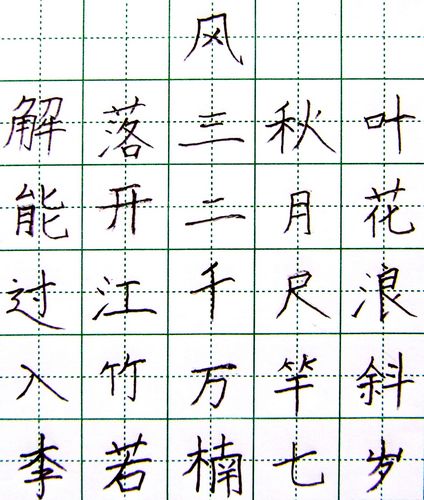 风
解落三秋叶
能开二月花
过江千尺浪
入竹万竿斜
李若楠七岁